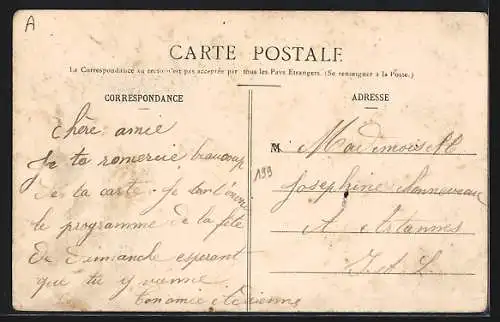 A
CARTE POSTALE
La Correspondance au recto n'est pas acceptée par tous les Pays Etrangers. (Se renseigner à la Poste.)
CORRESPONDANCE
ADRESSE
Chère amie
Je te remercie beaucoup
de ta carte. Je
le programme de la fête
de Dimanche esperant
que tu y vienne.
Ton amie
199
M Mademoiselle
Josephine
A Artannes
I. et L.